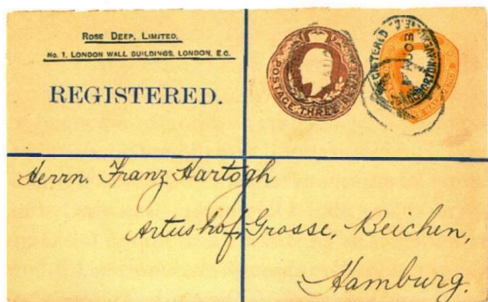 ROSE DEEP, LIMITED,
No. 1, LONDON WALL BUILDINGS, LONDON, E.C.
REGISTERED.
POSTAGE THREE
REGISTERED
Herrn. Franz Hartogh
Artushof, Grosse, Beichen,
Hamburg.